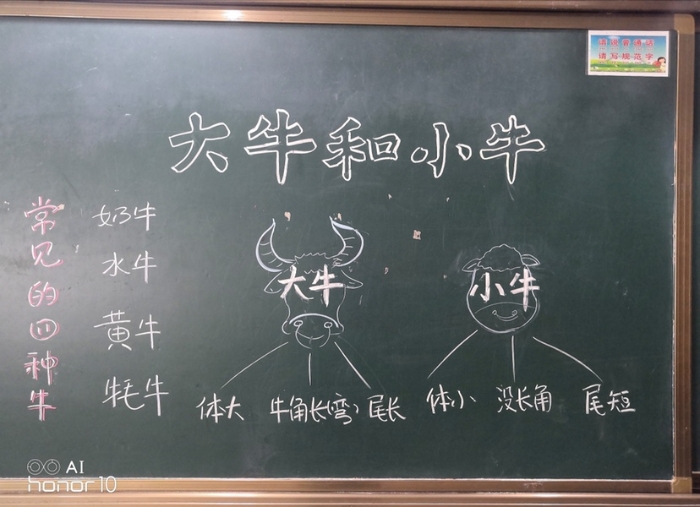 请说普通话
请写规范字
大牛和小牛
常见的四种牛
奶牛
水牛
黄牛
牦牛
大牛
体大 牛角长(弯) 尾长
小牛
体小 没长角 尾短
AI
honor 10